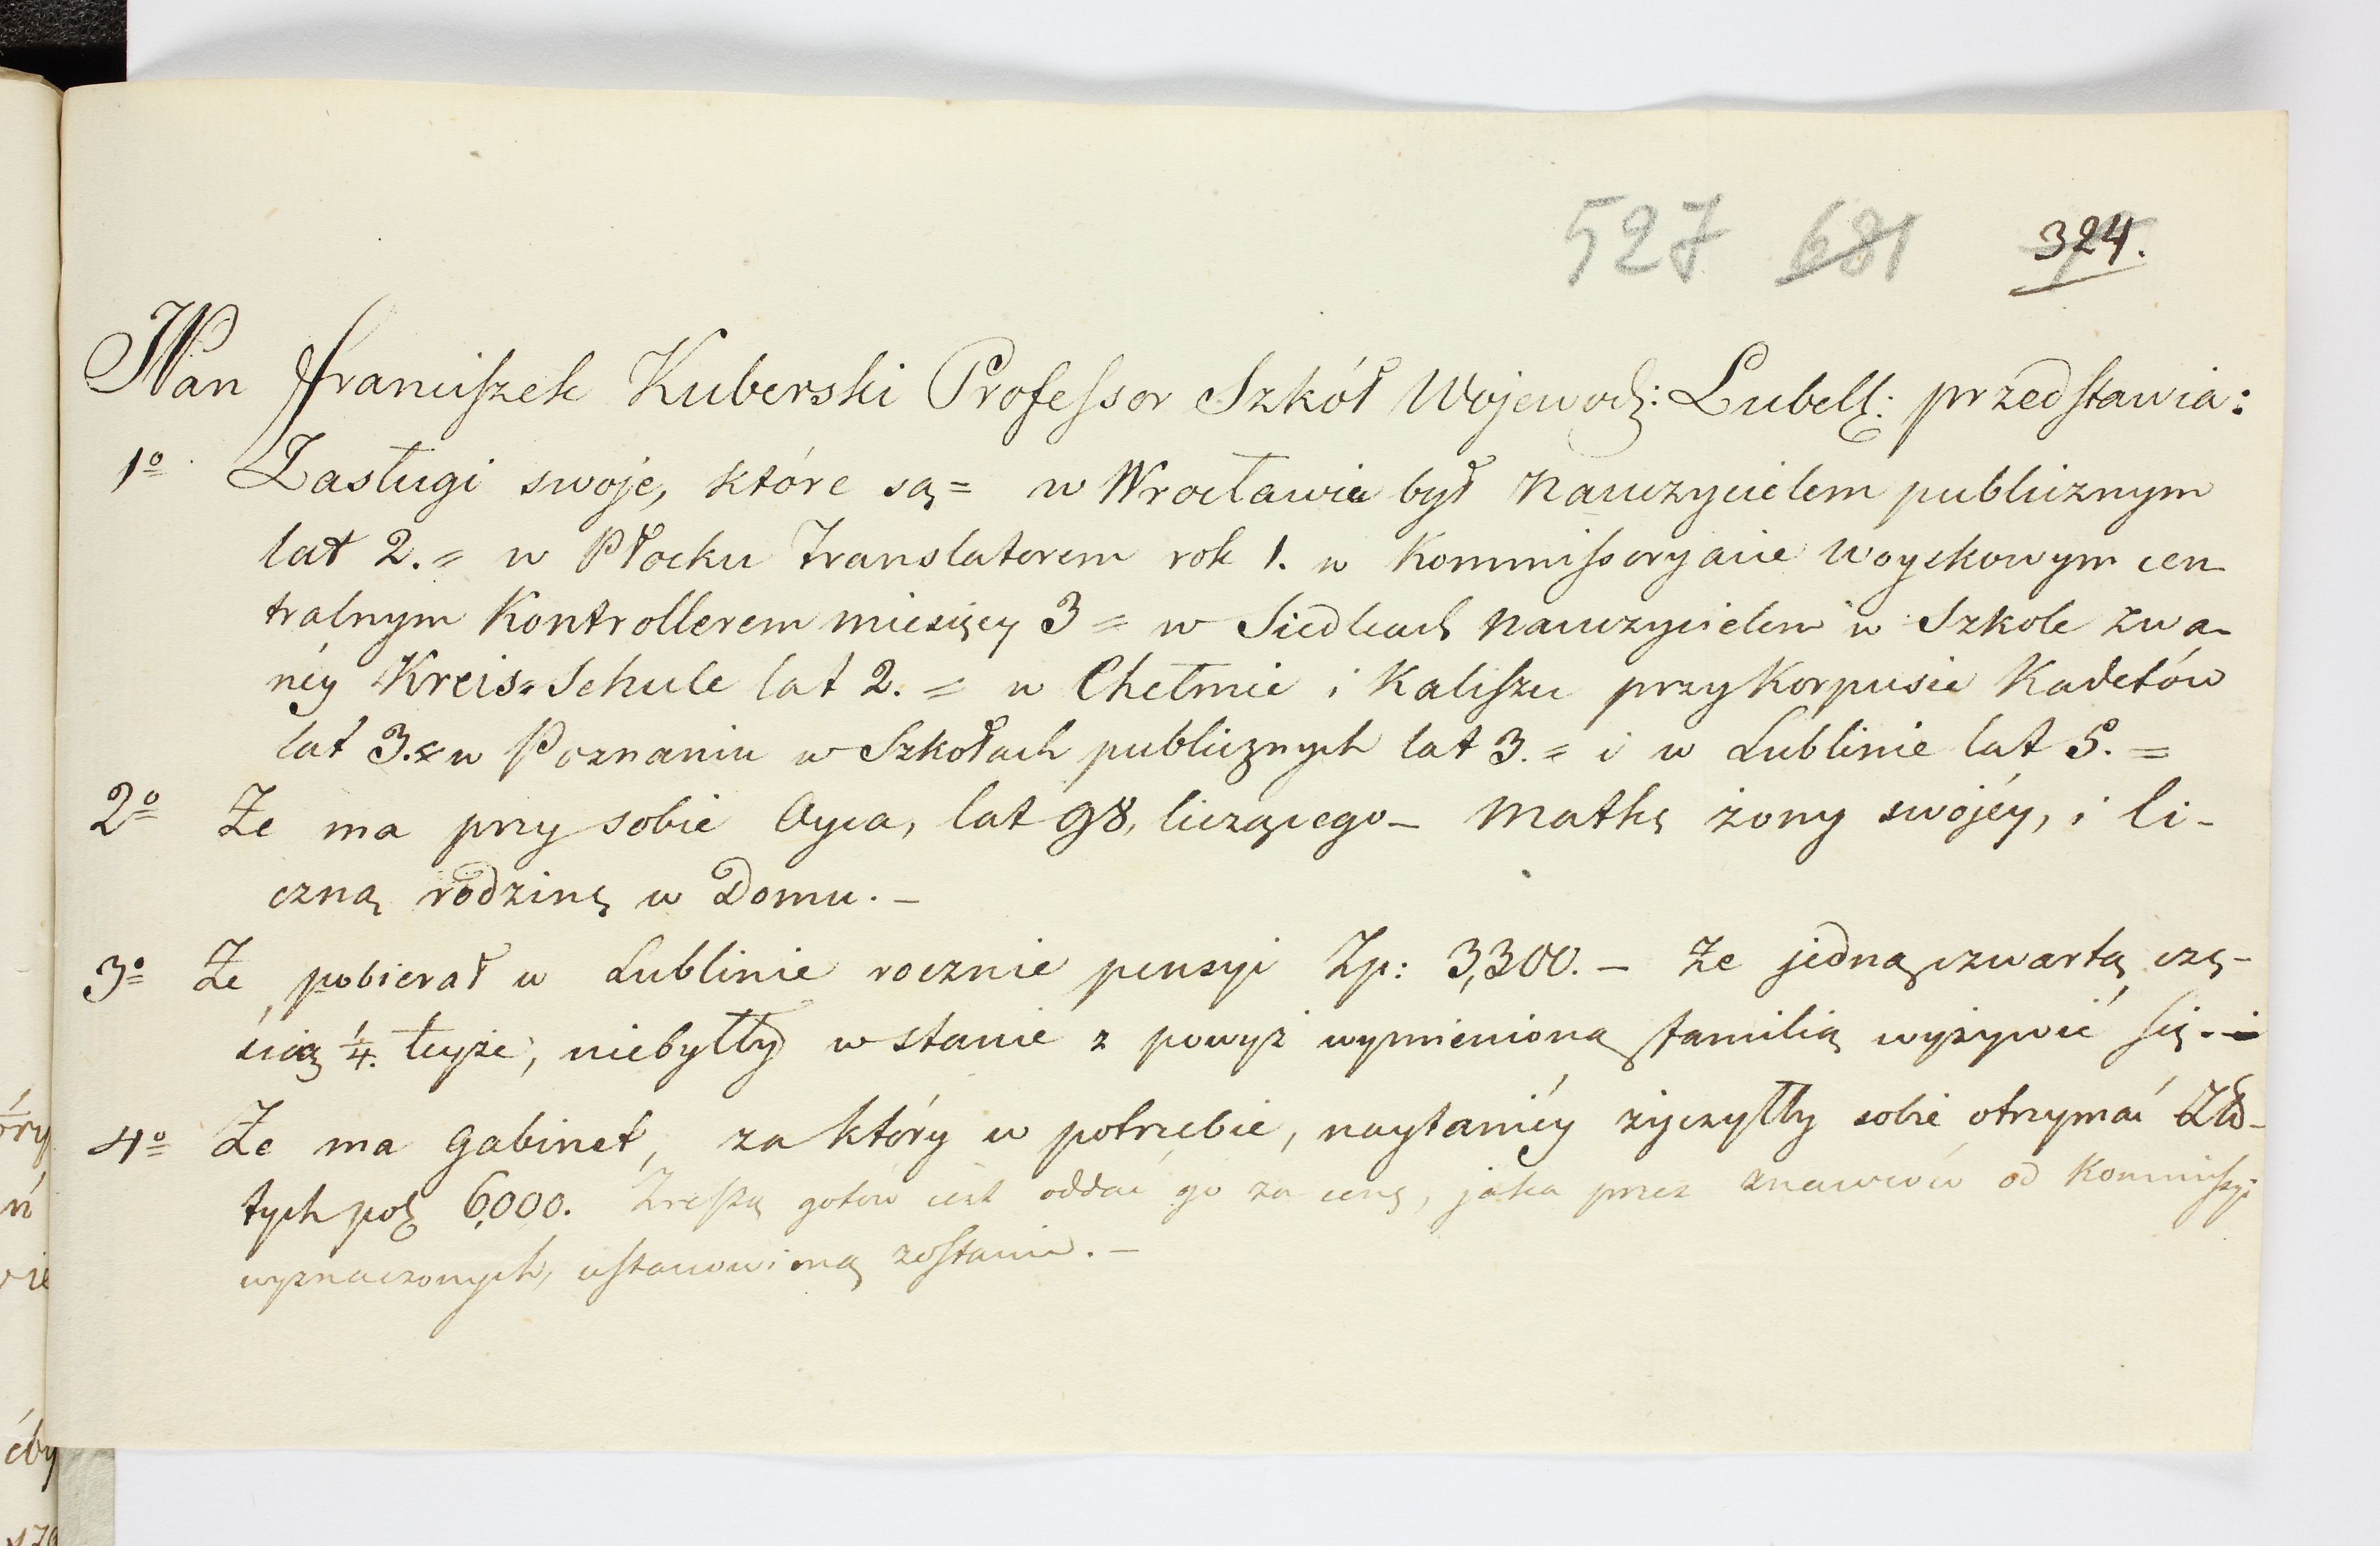 527 681 324.
JPan Franciszek Kuberski Professor Szkół Wojewodz: Lubell: przedstawia:
1o Zasługi swoje, które są = w Wrocławiu był Nauczycielem publicznym
lat 2. = w Płocku Translatorem rok 1. w Kommissoryacie Woyskowym cen-
tralnym Kontrollerem miesięcy 3 = w Siedlcach Nauczycielem w Szkole zwa-
néy Kreis=Schule lat 2. = w Chełmie i Kaliszu przy Korpusie Kadetów
lat 3. = w Poznaniu w Szkołach publicznych lat 3. = i w Lublinie lat 5. =
2o Że ma przy sobie Oyca, lat 98, liczącego – Matkę żony swojéy, i li-
czną rodzinę w Domu. –
3o Że pobierał w Lublinie rocznie pensyi Zp: 3,300. – Że jedną czwartą czę-
ścią 1/4. teyże, niebyłby w stanie z powyż wymienioną familią wyżywić się. –
4o Że ma Gabinet, za który w potrzebie, naytaniéy życzyłby sobie otrzymać Zło-
tych pol 6,000. Zresztą gotów iest oddać go za cenę, jaka przez znawców od Kommissyi
wyznaczonych, ustanowioną zostanie. –
óry
ń
ie
éby